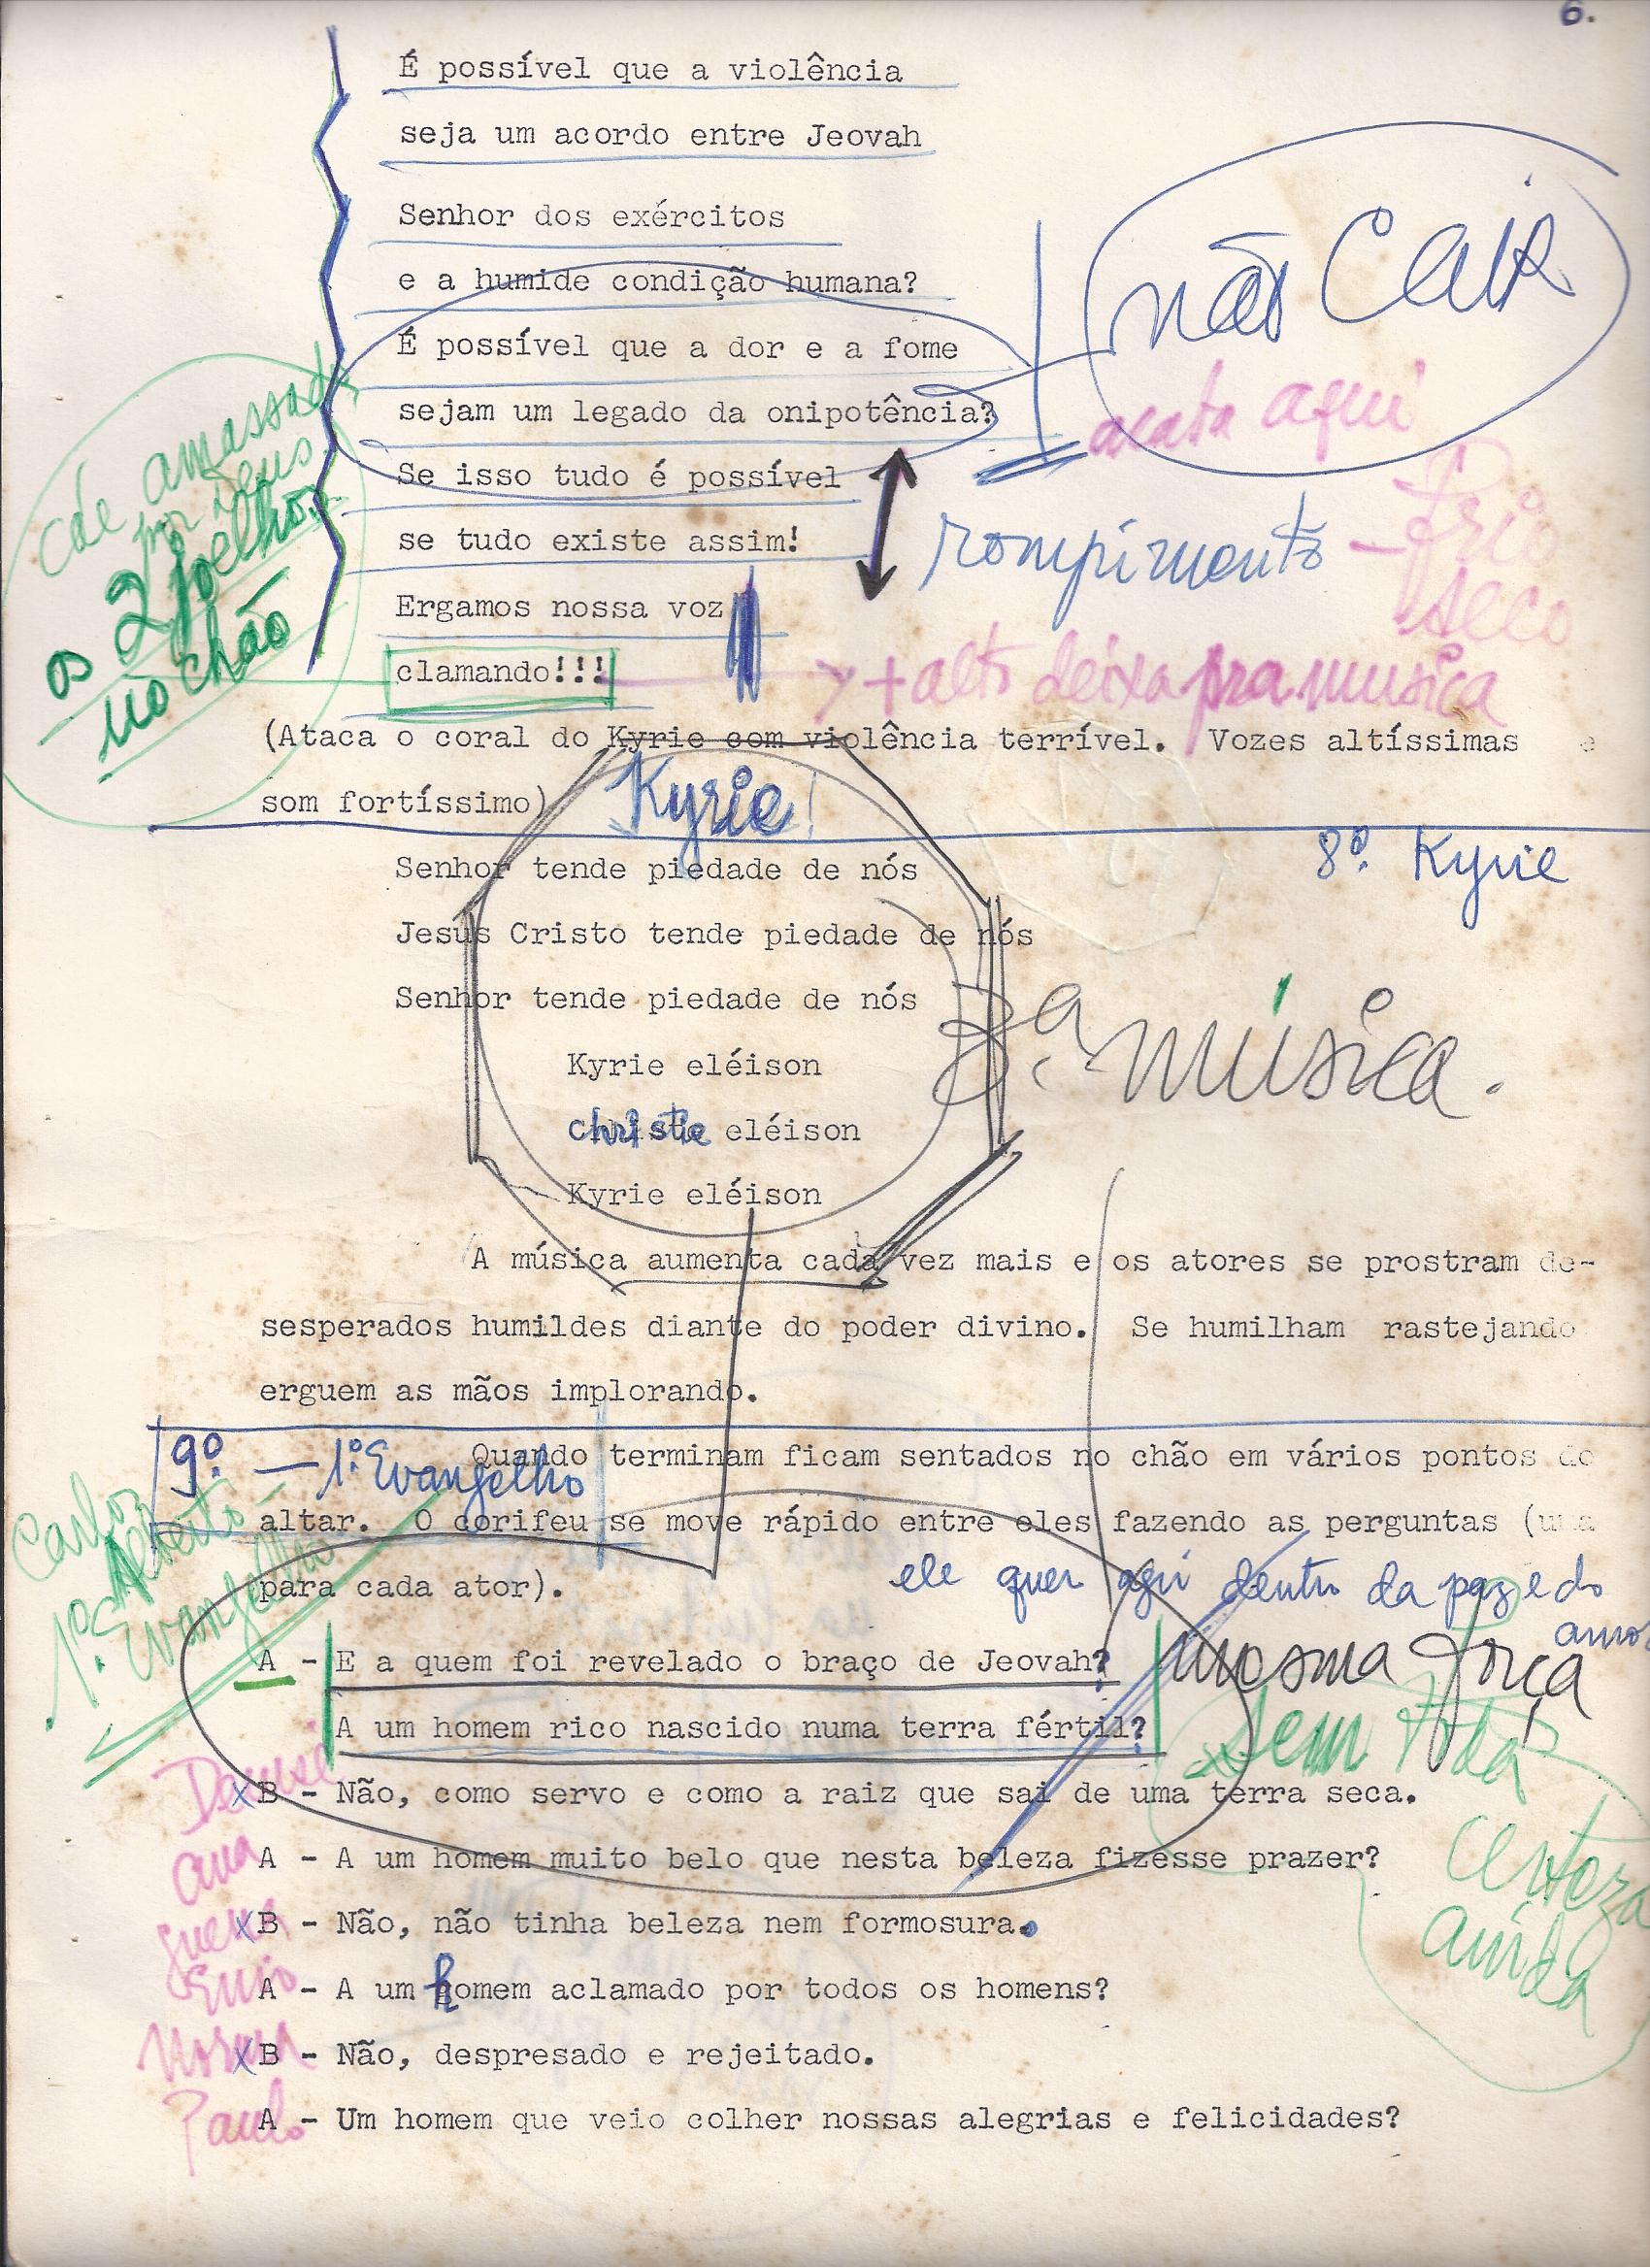 6.
É possível que a violência
seja um acordo entre Jeovah
Senhor dos exércitos
e a humide condição humana?
não Cair
É possível que a dor e a fome
sejam um legado da onipotência?
acata aqui
Se isso tudo é possível
se tudo existe assim!
rompimento - frio
seco
cáe amassado
por Deus
os 2 joelhos
no chão
Ergamos nossa voz
clamando!!!
+ alto deixa pra musica
(Ataca o coral do Kyrie com violência terrível. Vozes altíssimas e
som fortíssimo)
Kyrie!
8º. Kyrie
Senhor tende piedade de nós
Jesus Cristo tende piedade de nós
Senhor tende piedade de nós
3ª música.
Kyrie eléison
christie eléison
Kyrie eléison
A música aumenta cada vez mais e os atores se prostram de-
sesperados humildes diante do poder divino. Se humilham rastejando
erguem as mãos implorando.
9º. — 1º. Evangelho
Quando terminam ficam sentados no chão em vários pontos do
altar. O corifeu se move rápido entre eles fazendo as perguntas (uma
para cada ator).
Carlos
Alberto -
1º. Evangelho
ele quer aqui dentro da paz e do
amor
mesma força
A - E a quem foi revelado o braço de Jeovah?
A um homem rico nascido numa terra fértil?
sem toda
certeza
ainda
Denise
B - Não, como servo e como a raiz que sai de uma terra seca.
Ana
A - A um homem muito belo que nesta beleza fizesse prazer?
B - Não, não tinha beleza nem formosura.
Enio
A - A um homem aclamado por todos os homens?
Norma
B - Não, despresado e rejeitado.
Paulo
A - Um homem que veio colher nossas alegrias e felicidades?